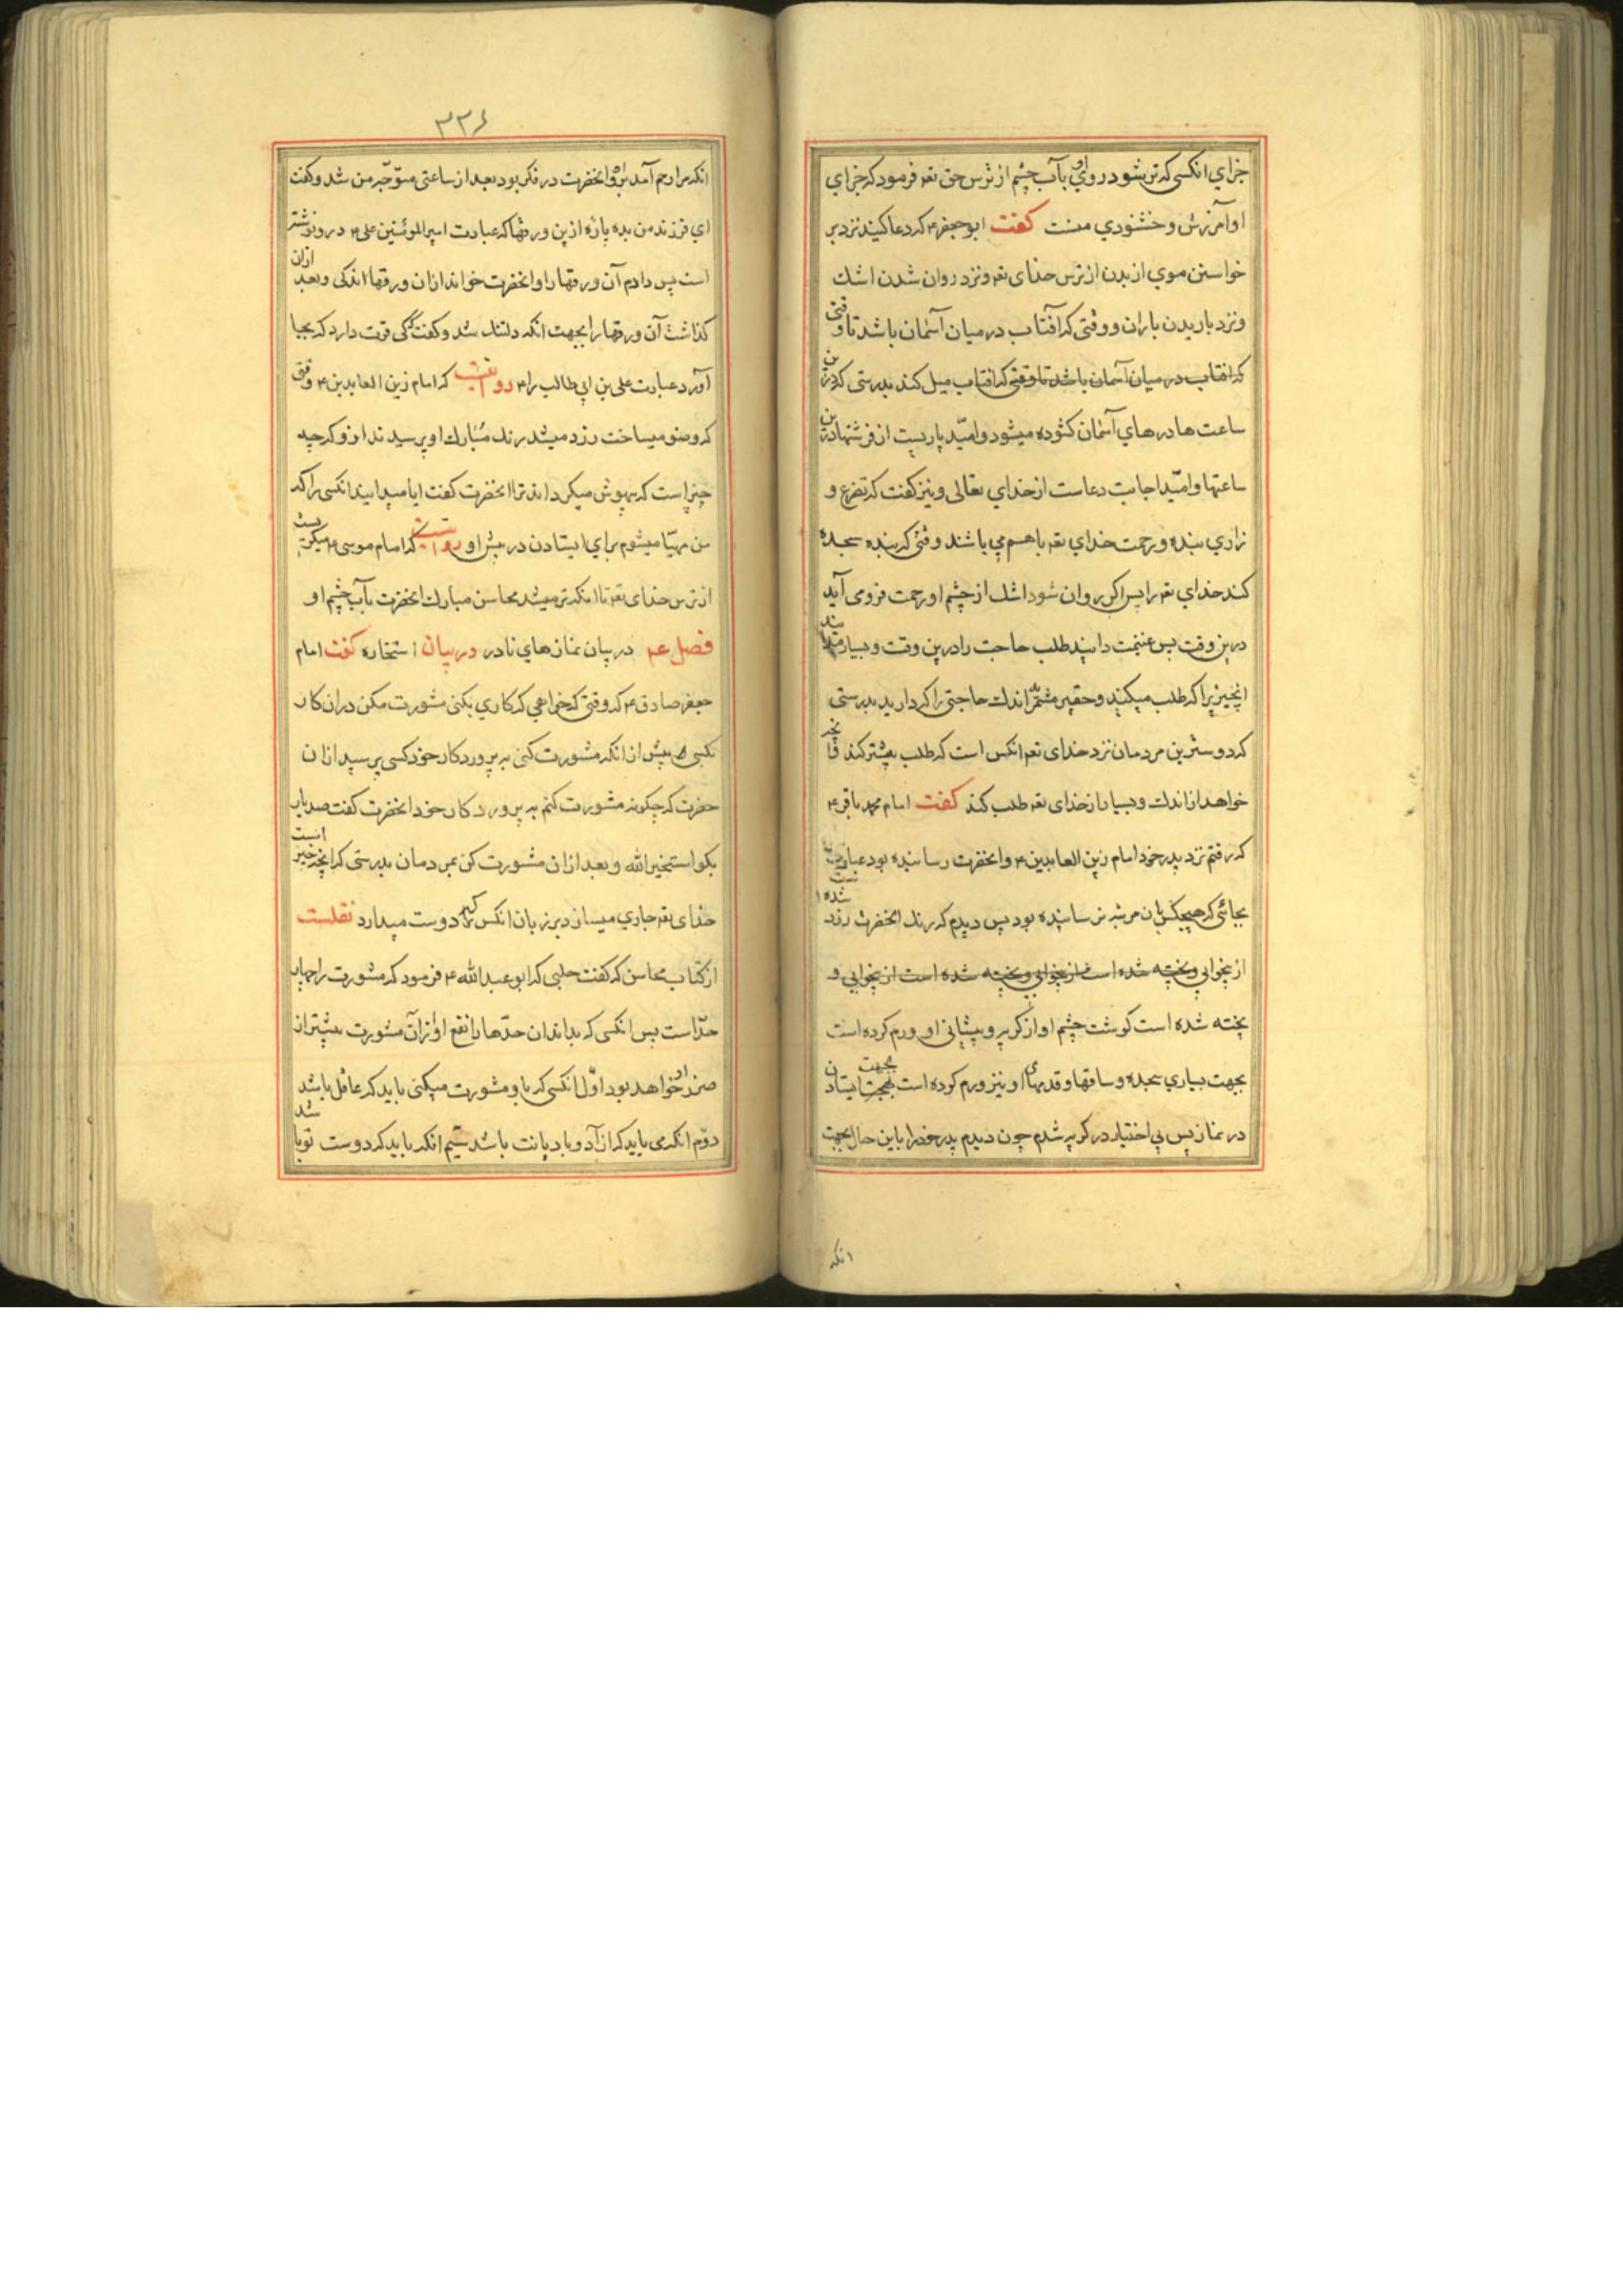 جزاي انكسي كه تر شود روي او بآب چشم از ترس حق تعه فرمود كه جزاي
او آمرزش و خشنودي منست كفت ابو جعفر ع كه دعا كنيد نزد بر
خواستن موي از بدن از ترس خداى تعه و نزد روان شدن اشك
و نزد باريدن باران و وقتى كه آفتاب در ميان آسمان باشد تا وقتى
كه افتاب در ميان آسمان باشد تا وقتى كه افتاب ميل كند بدرستى كه درين
ساعت ها درهاي آسمان كشوده ميشود و اميد ياريست از فرشتها درين
ساعتها و اميد اجابت دعاست از خداي تعالى و نيز كفت كه تضرع و
زاري بنده و رحمت خداي تعه باهم مي باشند وقتى كه بنده سجده
كند خداي تعه را پس اكر روان شود اشك از چشم او رحمت فرومى آيد
درين وقت پس غنيمت دانيد طلب حاجت را درين وقت و بسيار مدانيد
انچيزيرا كه طلب ميكنيد و حقير مشمريد اندك حاجتى را كه داريد بدرستى
كه دوسترين مردمان نزد خداى تعه انكس است كه طلب بيشتر كند
خواهد از اندك و بسيار از خداى تعه طلب كند كفت امام محمد باقر ع
كه رفتم نزد پدر خود امام زين العابدين ع و انحضرت رسانيده بود عبادت
بجائى كه هيچكس بان مرتبه نرسانيده بود پس ديدم كه رنك انحضرت زرد شده ا
از بيخوابي و پخته شده است از بيخوابي و پخته شده است از بيخوابي و
پخته شده است كوشت چشم او از كريه و پيشاني او ورم كرده است
بجهت بسياري سجده و ساقها و قدمهاى او نيز ورم كرده است بجهت ايستادن
در نماز پس بي اختيار در كريه شدم چون ديدم پدر خود را باين حال بجهت
انكه
٣٣٤
انكه مرا رحم آمد برو و انحضرت در فكر بود بعد از ساعتى متوجه من شد و كفت
اي فرزند من بده پاره ازين ورقها كه عبادت امير المومنين على ع درو نوشته
است پس دادم آن ورقها را و انحضرت خواند از ان ورقها اندكى و بعد ازان
كذاشت آن ورقها را بجهت انكه دلتنك شد و كفت كى قوت دارد كه بجا
آورد عبادت على بن ابي طالب را ع روايتست كه امام زين العابدين ع وقتى
كه وضو ميساخت زرد ميشد رنك مبارك او پرسيدند ازو كه چه
چيز است كه بيهوش ميكرداند ترا انحضرت كفت ايا ميدانيد انكسى را كه
من مهيا ميشوم براي ايستادن در پيش او روايتست كه امام موسى ع ميكريست
از ترس خداى تعه تا انكه تر ميشد محاسن مبارك انحضرت بآب چشم او
فصل در بيان نمازهاي نادر در بيان استخاره كفت امام
جعفر صادق ع كه وقتى كه خواهي كه كاري بكنى مشورت مكن دران كار
بكسى پيش از انكه مشورت كنى به پروردكار خود كسى پرسيد ازان
حضرت كه چكونه مشورت كنم به پروردكار خود انحضرت كفت صد بار
بكو استخير الله و بعد ازان مشورت كن بمردمان بدرستى كه انچه خير است
خداى تعه جاري ميسازد بر زبان انكس كه دوست ميدارد نقلست
از كتاب محاسن كه كفت حلبى كه ابو عبد الله ع فرمود كه مشورت را چهار
حد است پس انكسى كه بداند ان حدها را نفع او ازان مشورت بيشتر از
ضرر خواهد بود اول انكسى كه باو مشورت ميكنى بايد كه عاقل باشد
دوم انكه مى بايد كه ازاد و با ديانت باشد سيم انكه بايد كه دوست تو باشد